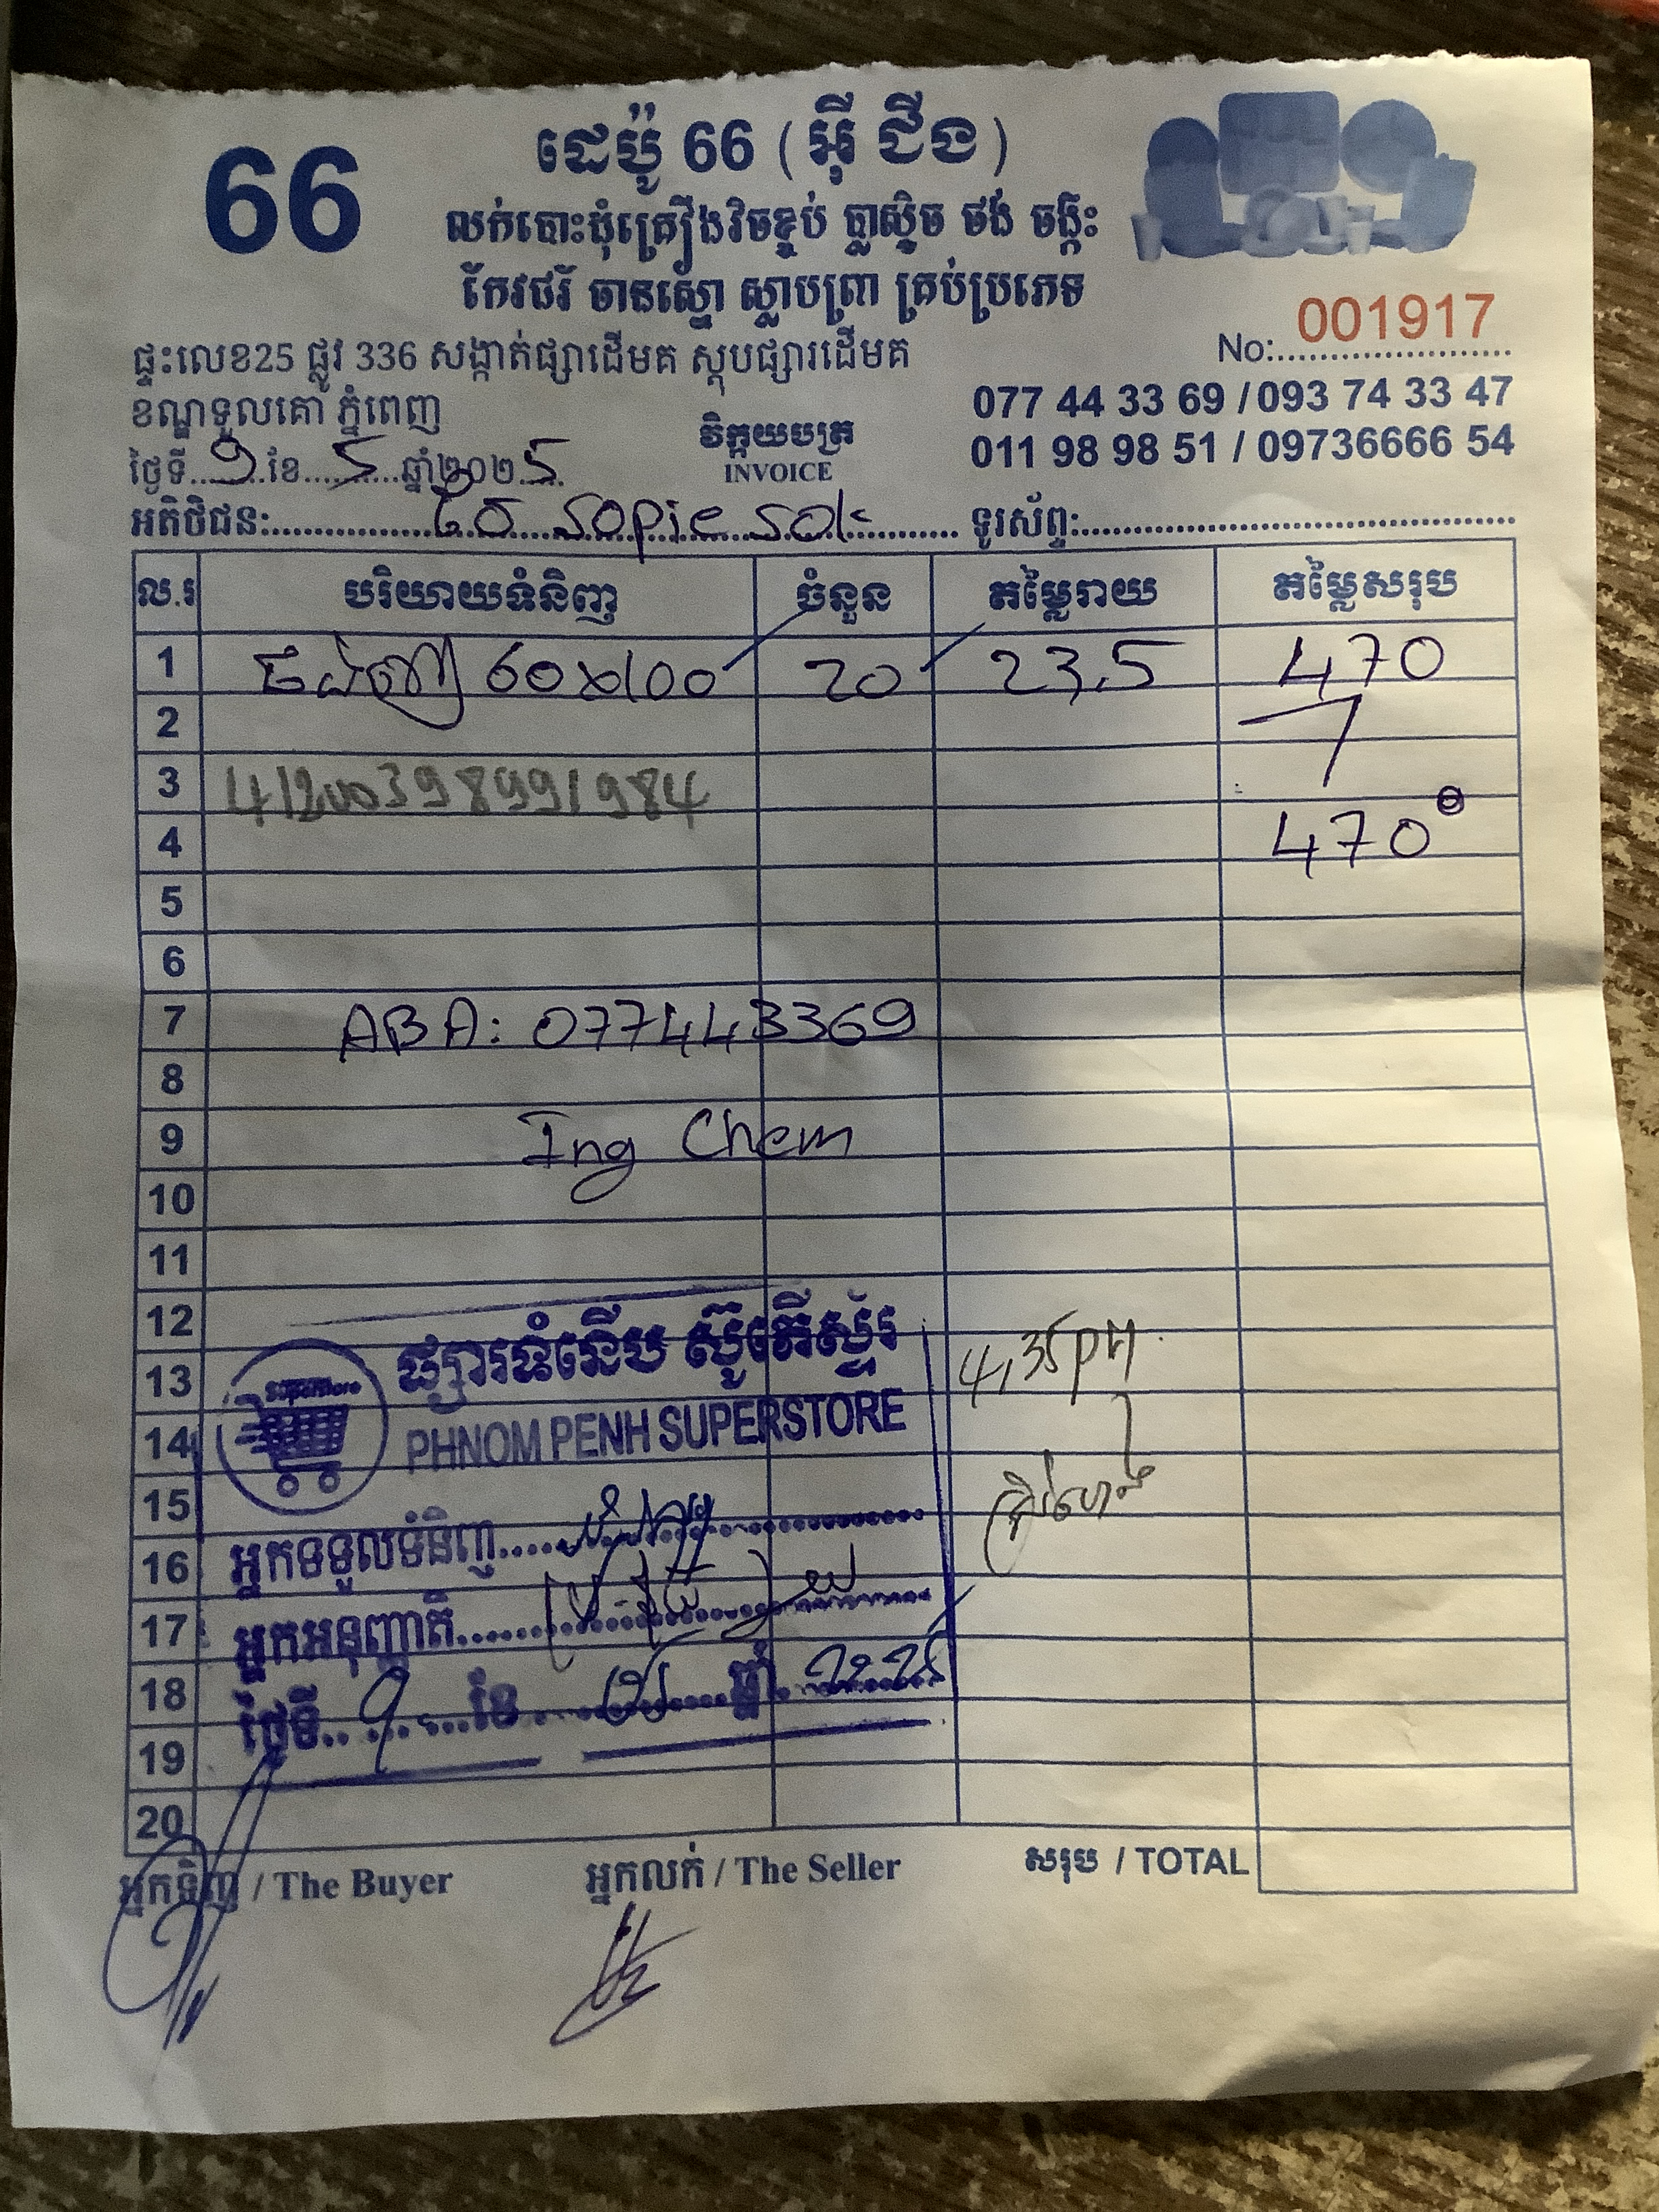 66
ដេប៉ូ 66 ( អ៊ី ជីង )
លក់បោះដុំគ្រឿងវិចខ្ចប់ ប្លាស្ទិច ថង់ ចង្កឹះ
កែវជ័រ ចានស្នោ ស្លាបព្រា គ្រប់ប្រភេទ
No:001917
ផ្ទះលេខ25 ផ្លូវ 336 សង្កាត់ផ្សាដើមគ ស្តុបផ្សារដើមគ
077 44 33 69 / 093 74 33 47
ខណ្ឌទួលគោ ភ្នំពេញ
011 98 98 51 / 09736666 54
វិក្កយបត្រ
INVOICE
ថ្ងៃទី 9 ខែ 5 ឆ្នាំ២០២5
អតិថិជន: ទូរស័ព្ទ:
ល.រ បរិយាយទំនិញ ចំនួន តម្លៃរាយ តម្លៃសរុប
1 60x100 20 23.5 470
2
3
4 470
5
6
7 ABA: 077443369
8
9 Ing Chem
10
11
12
13 4,35pm
14
15
16
17
18
19
20
ផ្សារទំនើប ស៊ូភើស្ទ័រ
superstore
PHNOM PENH SUPERSTORE
អ្នកទទួលទំនិញ
អ្នកអនុញ្ញាតិ
ថ្ងៃទី 9 ខែ ឆ្នាំ 2025
អ្នកទិញ / The Buyer អ្នកលក់ / The Seller សរុប / TOTAL